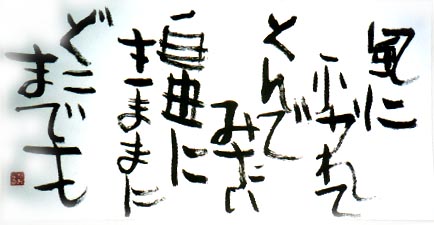 風に
ふかれて
とんで
みたい
自由に
きままに
どこ
までも